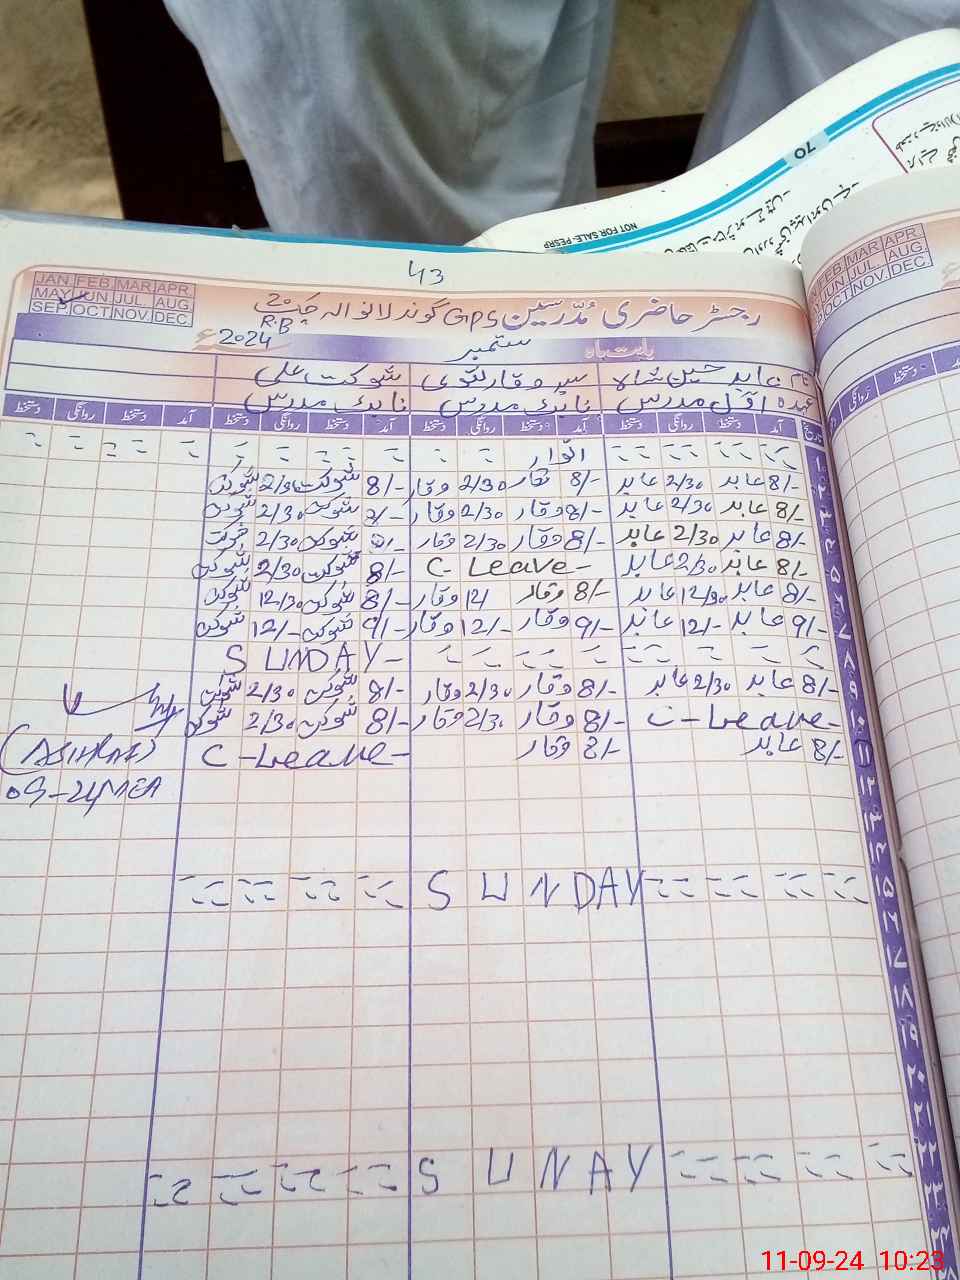 70
NOT FOR SALE-PESRP
43
JAN FEB MAR APR
MAY JUN JUL. AUG
SEP OCT NOV. DEC
رجسٹر حاضری مُدّرسین GPS گوندلانوالہ چک 20
R.B
بابت ماہ ستمبر 2024ء
نام عابد حسین شاہ سید وقار نقوی شوکت علی
عہدہ اوّل مدرس نائب مدرس نائب مدرس
تاریخ آمد دستخط روانگی دستخط آمد دستخط روانگی دستخط آمد دستخط روانگی دستخط آمد دستخط روانگی دستخط
۱ اتوار
۲ 8/- عابد 2/30 عابد 8/- وقار 2/30 وقار 8/- شوکت 2/30 شوکت
۳ 8/- عابد 2/30 عابد 8/- وقار 2/30 وقار شوکت 2/30 شوکت
۴ 8/- عابد 2/30 عابد 8/- وقار 2/30 وقار 8/- شوکت 2/30 شوکت
۵ 8/- عابد 2/30 عابد C-Leave- 8/- شوکت 2/30 شوکت
۶ 8/- عابد 12/30 عابد 8/- وقار 12/ وقار 8/- شوکت 12/30 شوکت
۷ 9/- عابد 12/- عابد 9/- وقار 12/- وقار 9/- شوکت 12/- شوکت
۸ SUNDAY-
۹ 8/- عابد 2/30 عابد 8/- وقار 2/30 وقار 8/- شوکت 2/30 شوکت
۱۰ C-Leave- 8/- وقار 2/30 وقار 8/- شوکت 2/30 شوکت
۱۱ 8/- عابد 8/- وقار C-Leave-
(ASHRAF)
۱۲
۱۳
۱۴
۱۵ SUNDAY
۱۶
۱۷
۱۸
۱۹
۲۰
۲۱
۲۲ SUNAY
۲۳
MAR APR.
JUN JUL. AUG.
OCT NOV. DEC.
11-09-24 10:23